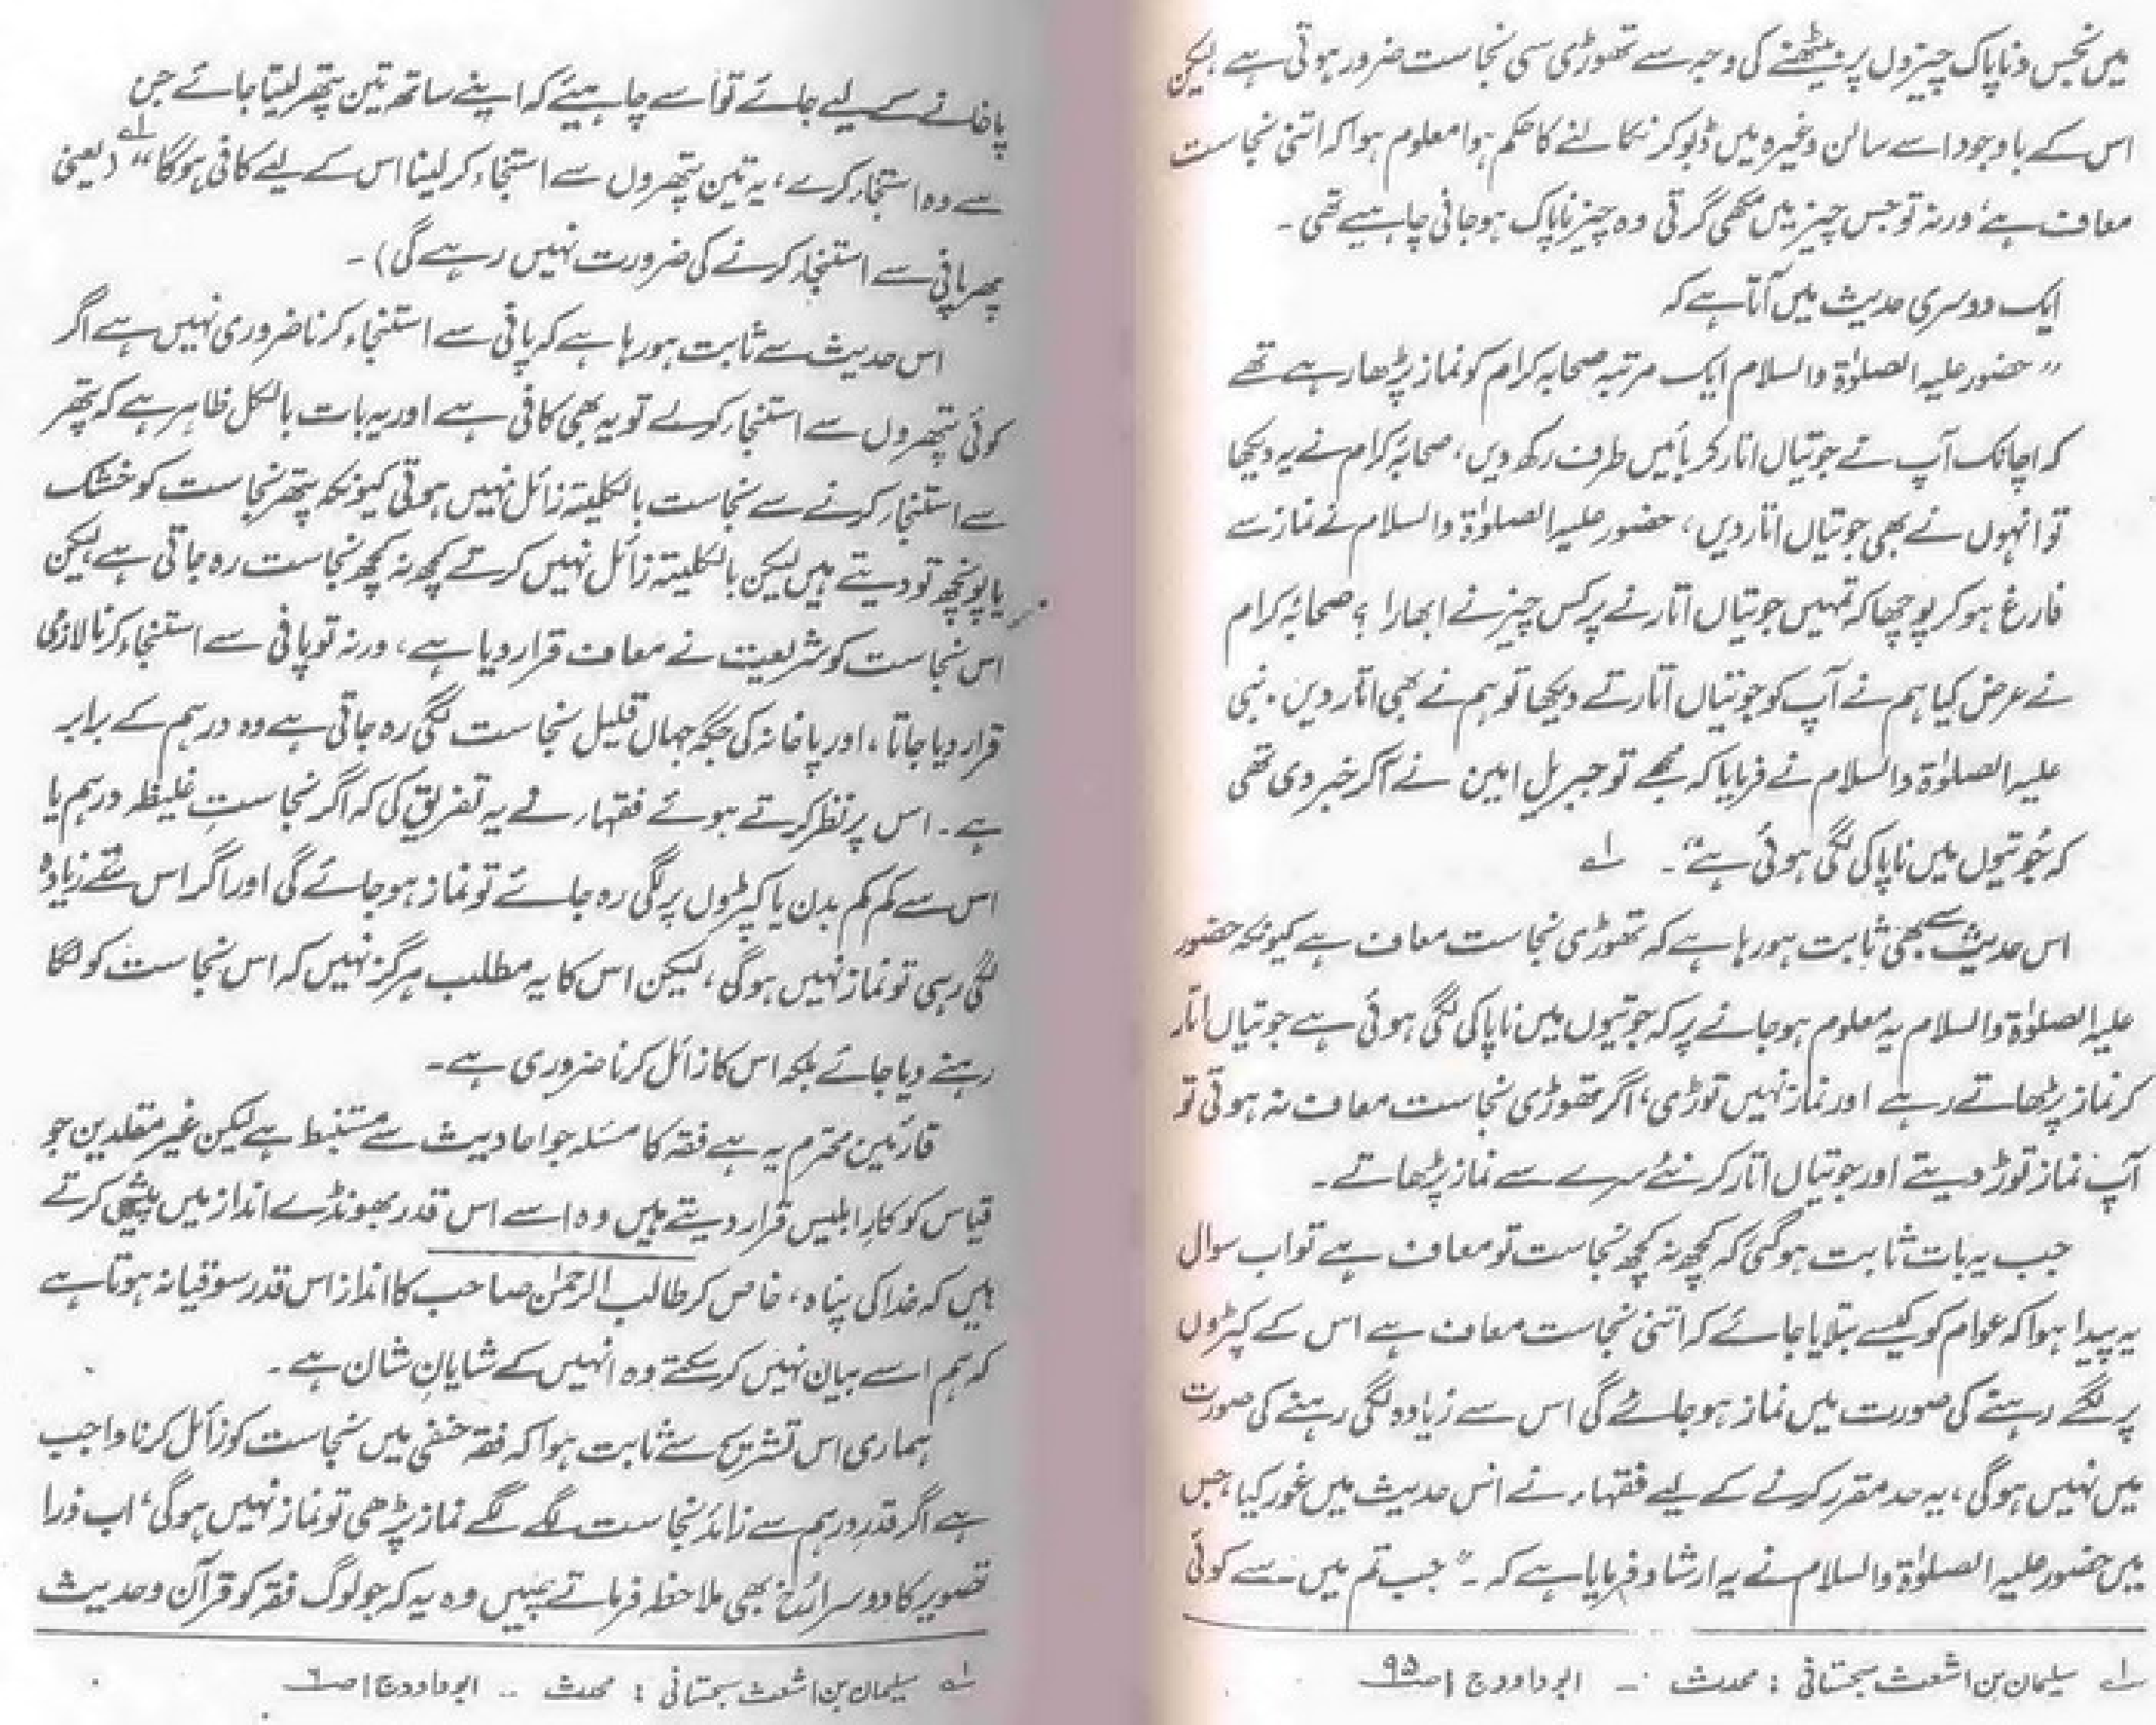 میں نجس و ناپاک چیزوں پر بیٹھنے کی وجہ سے تھوڑی سی نجاست ضرور ہوتی ہے، لیکن
اس کے باوجود اسے سالن وغیرہ میں ڈبو کر نکالنے کا حکم ہوا معلوم ہوا کہ اتنی نجاست
معاف ہے، ورنہ تو جس چیز میں مکھی گرتی وہ چیز ناپاک ہو جانی چاہیے تھی۔
ایک دوسری حدیث میں آتا ہے کہ
"حضور علیہ الصلوٰۃ والسلام ایک مرتبہ صحابہ کرام کو نماز پڑھا رہے تھے
کہ اچانک آپ نے جوتیاں اتار کر بائیں طرف رکھ دیں، صحابہ کرام نے یہ دیکھا
تو انہوں نے بھی جوتیاں اتار دیں، حضور علیہ الصلوٰۃ والسلام نے نماز سے
فارغ ہو کر پوچھا کہ تمہیں جوتیاں اتارنے پر کس چیز نے ابھارا؟ صحابہ کرام
نے عرض کیا ہم نے آپ کو جوتیاں اتارتے دیکھا تو ہم نے بھی اتار دیں۔ نبی
علیہ الصلوٰۃ والسلام نے فرمایا کہ مجھے تو جبریل امین نے آکر خبر دی تھی
کہ جُوتیوں میں ناپاکی لگی ہوئی ہے"۔ ۱؎
اس حدیث سے بھی ثابت ہو رہا ہے کہ تھوڑی نجاست معاف ہے کیونکہ حضور
علیہ الصلوٰۃ والسلام یہ معلوم ہو جانے پر کہ جوتیوں میں ناپاکی لگی ہوئی ہے جوتیاں اتار
کر نماز پڑھاتے رہے اور نماز نہیں توڑی، اگر تھوڑی نجاست معاف نہ ہوتی تو
آپ نماز توڑ دیتے اور جوتیاں اتار کر نئے سرے سے نماز پڑھاتے۔
جب یہ بات ثابت ہو گئی کہ کچھ نہ کچھ نجاست تو معاف ہے تو اب سوال
یہ پیدا ہوا کہ عوام کو کیسے بتلایا جائے کہ اتنی نجاست معاف ہے اس کے کپڑوں
پر لگے رہنے کی صورت میں نماز ہو جائے گی اس سے زیادہ لگی رہنے کی صورت
میں نہیں ہوگی، یہ حد مقرر کرنے کے لیے فقہاء نے اس حدیث میں غور کیا، جس
میں حضور علیہ الصلوٰۃ والسلام نے یہ ارشاد فرمایا ہے کہ۔ "جب تم میں سے کوئی
۱؎ سلیمان بن اشعث سجستانی : محدث ۔۔ ابو داؤد ج ۱ ص ۹۵
پاخانے کے لیے جائے تو اسے چاہیئے کہ اپنے ساتھ تین پتھر لیتا جائے جن
سے وہ استنجاء کرے، یہ تین پتھروں سے استنجاء کر لینا اس کے لیے کافی ہوگا" ۱؎ (یعنی
پھر پانی سے استنجاء کرنے کی ضرورت نہیں رہے گی)۔
اس حدیث سے ثابت ہو رہا ہے کہ پانی سے استنجاء کرنا ضروری نہیں ہے اگر
کوئی پتھروں سے استنجاء کرلے تو یہ بھی کافی ہے اور یہ بات بالکل ظاہر ہے کہ پتھر
سے استنجاء کرنے سے نجاست بالکلیتہ زائل نہیں ہوتی کیونکہ پتھر نجاست کو خشک
یا پونچھ تو دیتے ہیں لیکن بالکلیتہ زائل نہیں کرتے کچھ نہ کچھ نجاست رہ جاتی ہے، لیکن
اس نجاست کو شریعت نے معاف قرار دیا ہے، ورنہ تو پانی سے استنجاء کرنا لازمی
قرار دیا جاتا، اور پاخانہ کی جگہ جہاں قلیل نجاست لگی رہ جاتی ہے وہ درہم کے برابر
ہے۔ اس پر نظر کرتے ہوئے فقہاء نے یہ تفریق کی کہ اگر نجاستِ غلیظہ درہم یا
اس سے کم کم بدن یا کپڑوں پر لگی رہ جائے تو نماز ہو جائے گی اور اگر اس سے زیادہ
لگی رہی تو نماز نہیں ہوگی، لیکن اس کا یہ مطلب ہرگز نہیں کہ اس نجاست کو لگا
رہنے دیا جائے بلکہ اس کا زائل کرنا ضروری ہے۔
قارئین محترم یہ ہے فقہ کا مسئلہ جو احادیث سے مستنبط ہے لیکن غیر مقلدین جو
قیاس کو کارِ ابلیس قرار دیتے ہیں وہ اسے اس قدر بھونڈے انداز میں پیش کرتے
ہیں کہ خدا کی پناہ، خاص کر طالب الرحمٰن صاحب کا انداز اس قدر سوقیانہ ہوتا ہے
کہ ہم اسے بیان نہیں کرسکتے وہ انہیں کے شایانِ شان ہے۔
ہماری اس تشریح سے ثابت ہوا کہ فقہ حنفی میں نجاست کو زائل کرنا واجب
ہے اگر قدرِ درہم سے زائد نجاست لگے لگے نماز پڑھی تو نماز نہیں ہوگی، اب ذرا
تصویر کا دوسرا رُخ بھی ملاحظہ فرماتے چلیں وہ یہ کہ جو لوگ فقہ کو قرآن و حدیث
۱؎ سلیمان بن اشعث سجستانی : محدث ۔۔ ابو داؤد ج ۱ ص ۶